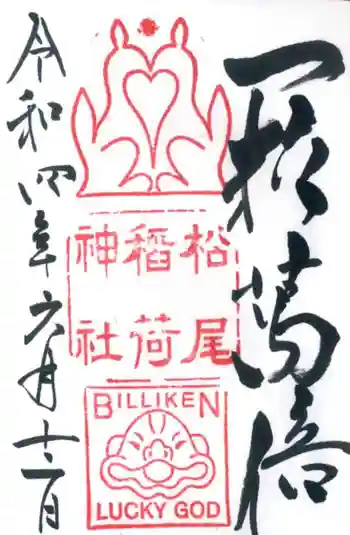 一粒萬倍
松尾
稲荷
神社
BILLIKEN
LUCKY GOD
令和四年六月十二日